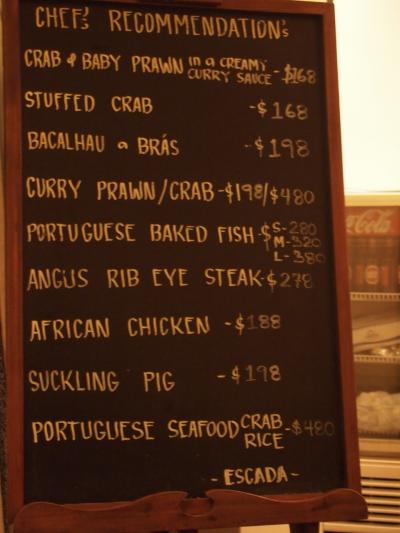 CHEF'S RECOMMENDATION'S
CRAB & BABY PRAWN IN a CREAMY CURRY SAUCE - $168
STUFFED CRAB - $168
BACALHAU a BRÁS - $198
CURRY PRAWN/CRAB - $198/$480
PORTUGUESE BAKED FISH - $ S - 280
M - 320
L - 380
ANGUS RIB EYE STEAK - $278
AFRICAN CHICKEN - $188
SUCKLING PIG - $198
PORTUGUESE SEAFOOD CRAB RICE - $480
- ESCADA -
Coca-Cola